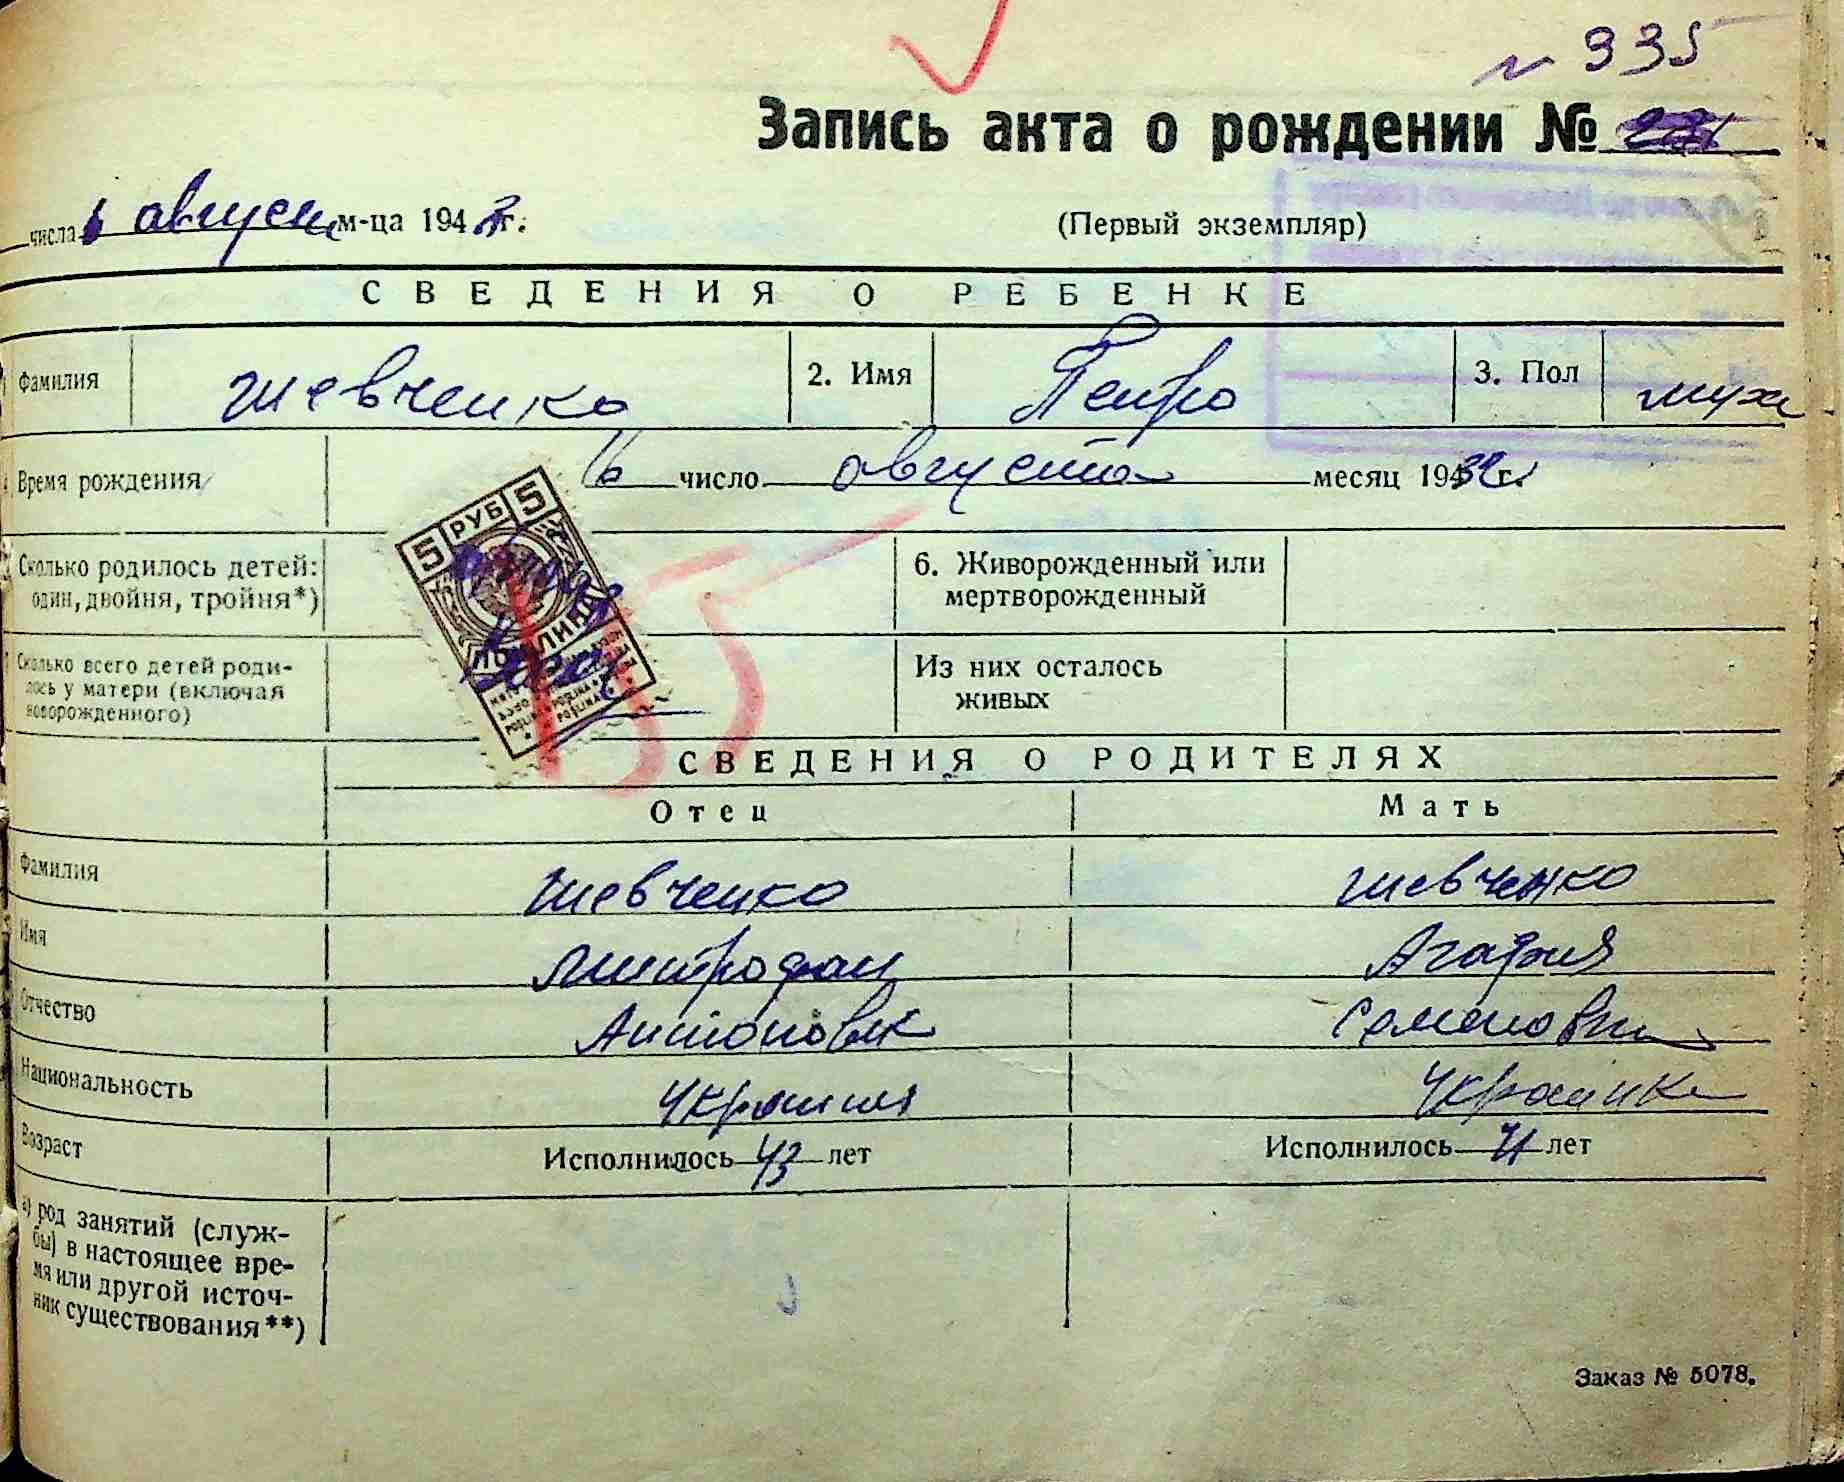 № 335
Запись акта о рождении №
числа 6 август м-ца 194 г.
(Первый экземпляр)
СВЕДЕНИЯ О РЕБЕНКЕ
Фамилия Шевченко 2. Имя Петро 3. Пол муж
Время рождения 16 число августа месяц 19432 г.
Сколько родилось детей: один, двойня, тройня*)
6. Живорожденный или мертворожденный
5 РУБ 5
15
Сколько всего детей родилось у матери (включая новорожденного)
Из них осталось живых
СВЕДЕНИЯ О РОДИТЕЛЯХ
Отец Мать
Фамилия Шевченко Шевченко
Имя Митрофан Агафия
Отчество Антонович Семеновна
Национальность Украинец Украинка
Возраст Исполнилось 43 лет Исполнилось 41 лет
а) род занятий (службы) в настоящее время или другой источник существования**)
Заказ № 5078.